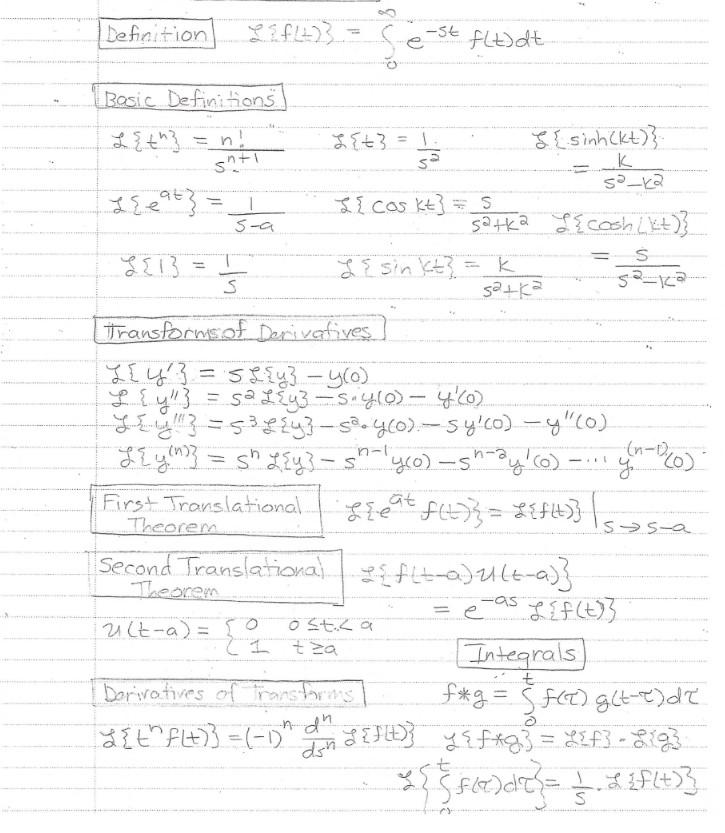 Definition ℒ{f(t)} = ∫₀^∞ e^-st f(t)dt
Basic Definitions
ℒ{tⁿ} = n!/s^(n+1) ℒ{t} = 1/s² ℒ{sinh(kt)} = k/(s²-k²)
ℒ{e^at} = 1/(s-a) ℒ{cos kt} = s/(s²+k²) ℒ{cosh(kt)} = s/(s²-k²)
ℒ{1} = 1/s ℒ{sin kt} = k/(s²+k²)
Transforms of Derivatives
ℒ{y'} = sℒ{y} - y(0)
ℒ{y''} = s²ℒ{y} - s·y(0) - y'(0)
ℒ{y'''} = s³ℒ{y} - s²·y(0) - sy'(0) - y''(0)
ℒ{y^(n)} = sⁿℒ{y} - s^(n-1)y(0) - s^(n-2)y'(0) - ... y^(n-1)(0)
First Translational
Theorem
ℒ{e^at f(t)} = ℒ{f(t)}|s→s-a
Second Translational
Theorem
ℒ{f(t-a)U(t-a)}
= e^-as ℒ{f(t)}
U(t-a) = { 0 0≤t<a
{ 1 t≥a
Integrals
f*g = ∫₀^t f(τ)g(t-τ)dτ
ℒ{f*g} = ℒ{f}·ℒ{g}
ℒ{∫₀^t f(τ)dτ} = 1/s · ℒ{f(t)}
Derivatives of Transforms
ℒ{tⁿf(t)} = (-1)ⁿ dⁿ/dsⁿ ℒ{f(t)}